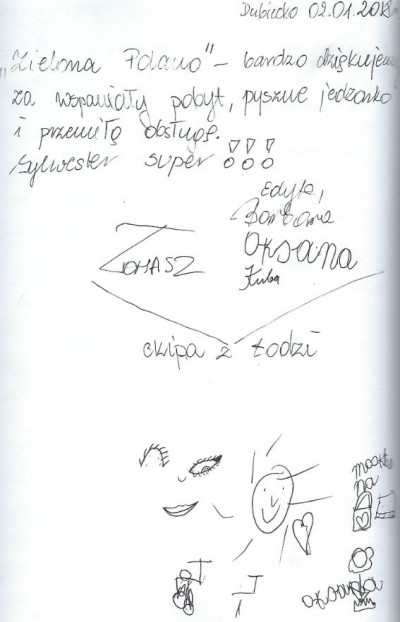 Dubiecko 02.01.2018
„Zielona Polano" – bardzo dziękujemy
za wspaniały pobyt, pyszne jedzonko
i przemiłą obsługę.
Sylwester super !!!
Edyta,
Barbara
Tomasz
Oksana
Kuba
ekipa z Łodzi